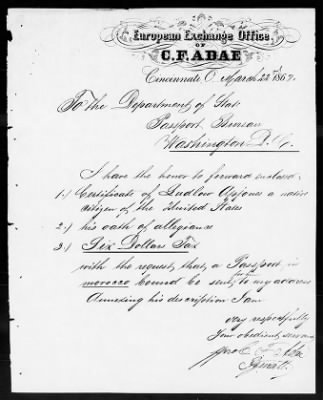 European Exchange Office
OF
C. F. ADAE
Cincinnati, O. March 22nd 1869.
To the Department of State
Passport Bureau
Washington D. C.
I have the honor to forward enclosed
1.) Certificate of Ludlow Apjones a native
citizen of the United States
2.) his oath of allegiance
3.) Six Dollars Tax
with the request, that, a Passport, in
morocco bound be sent, to my address
Annexing his description I am
very respectfully
Your obedient servant